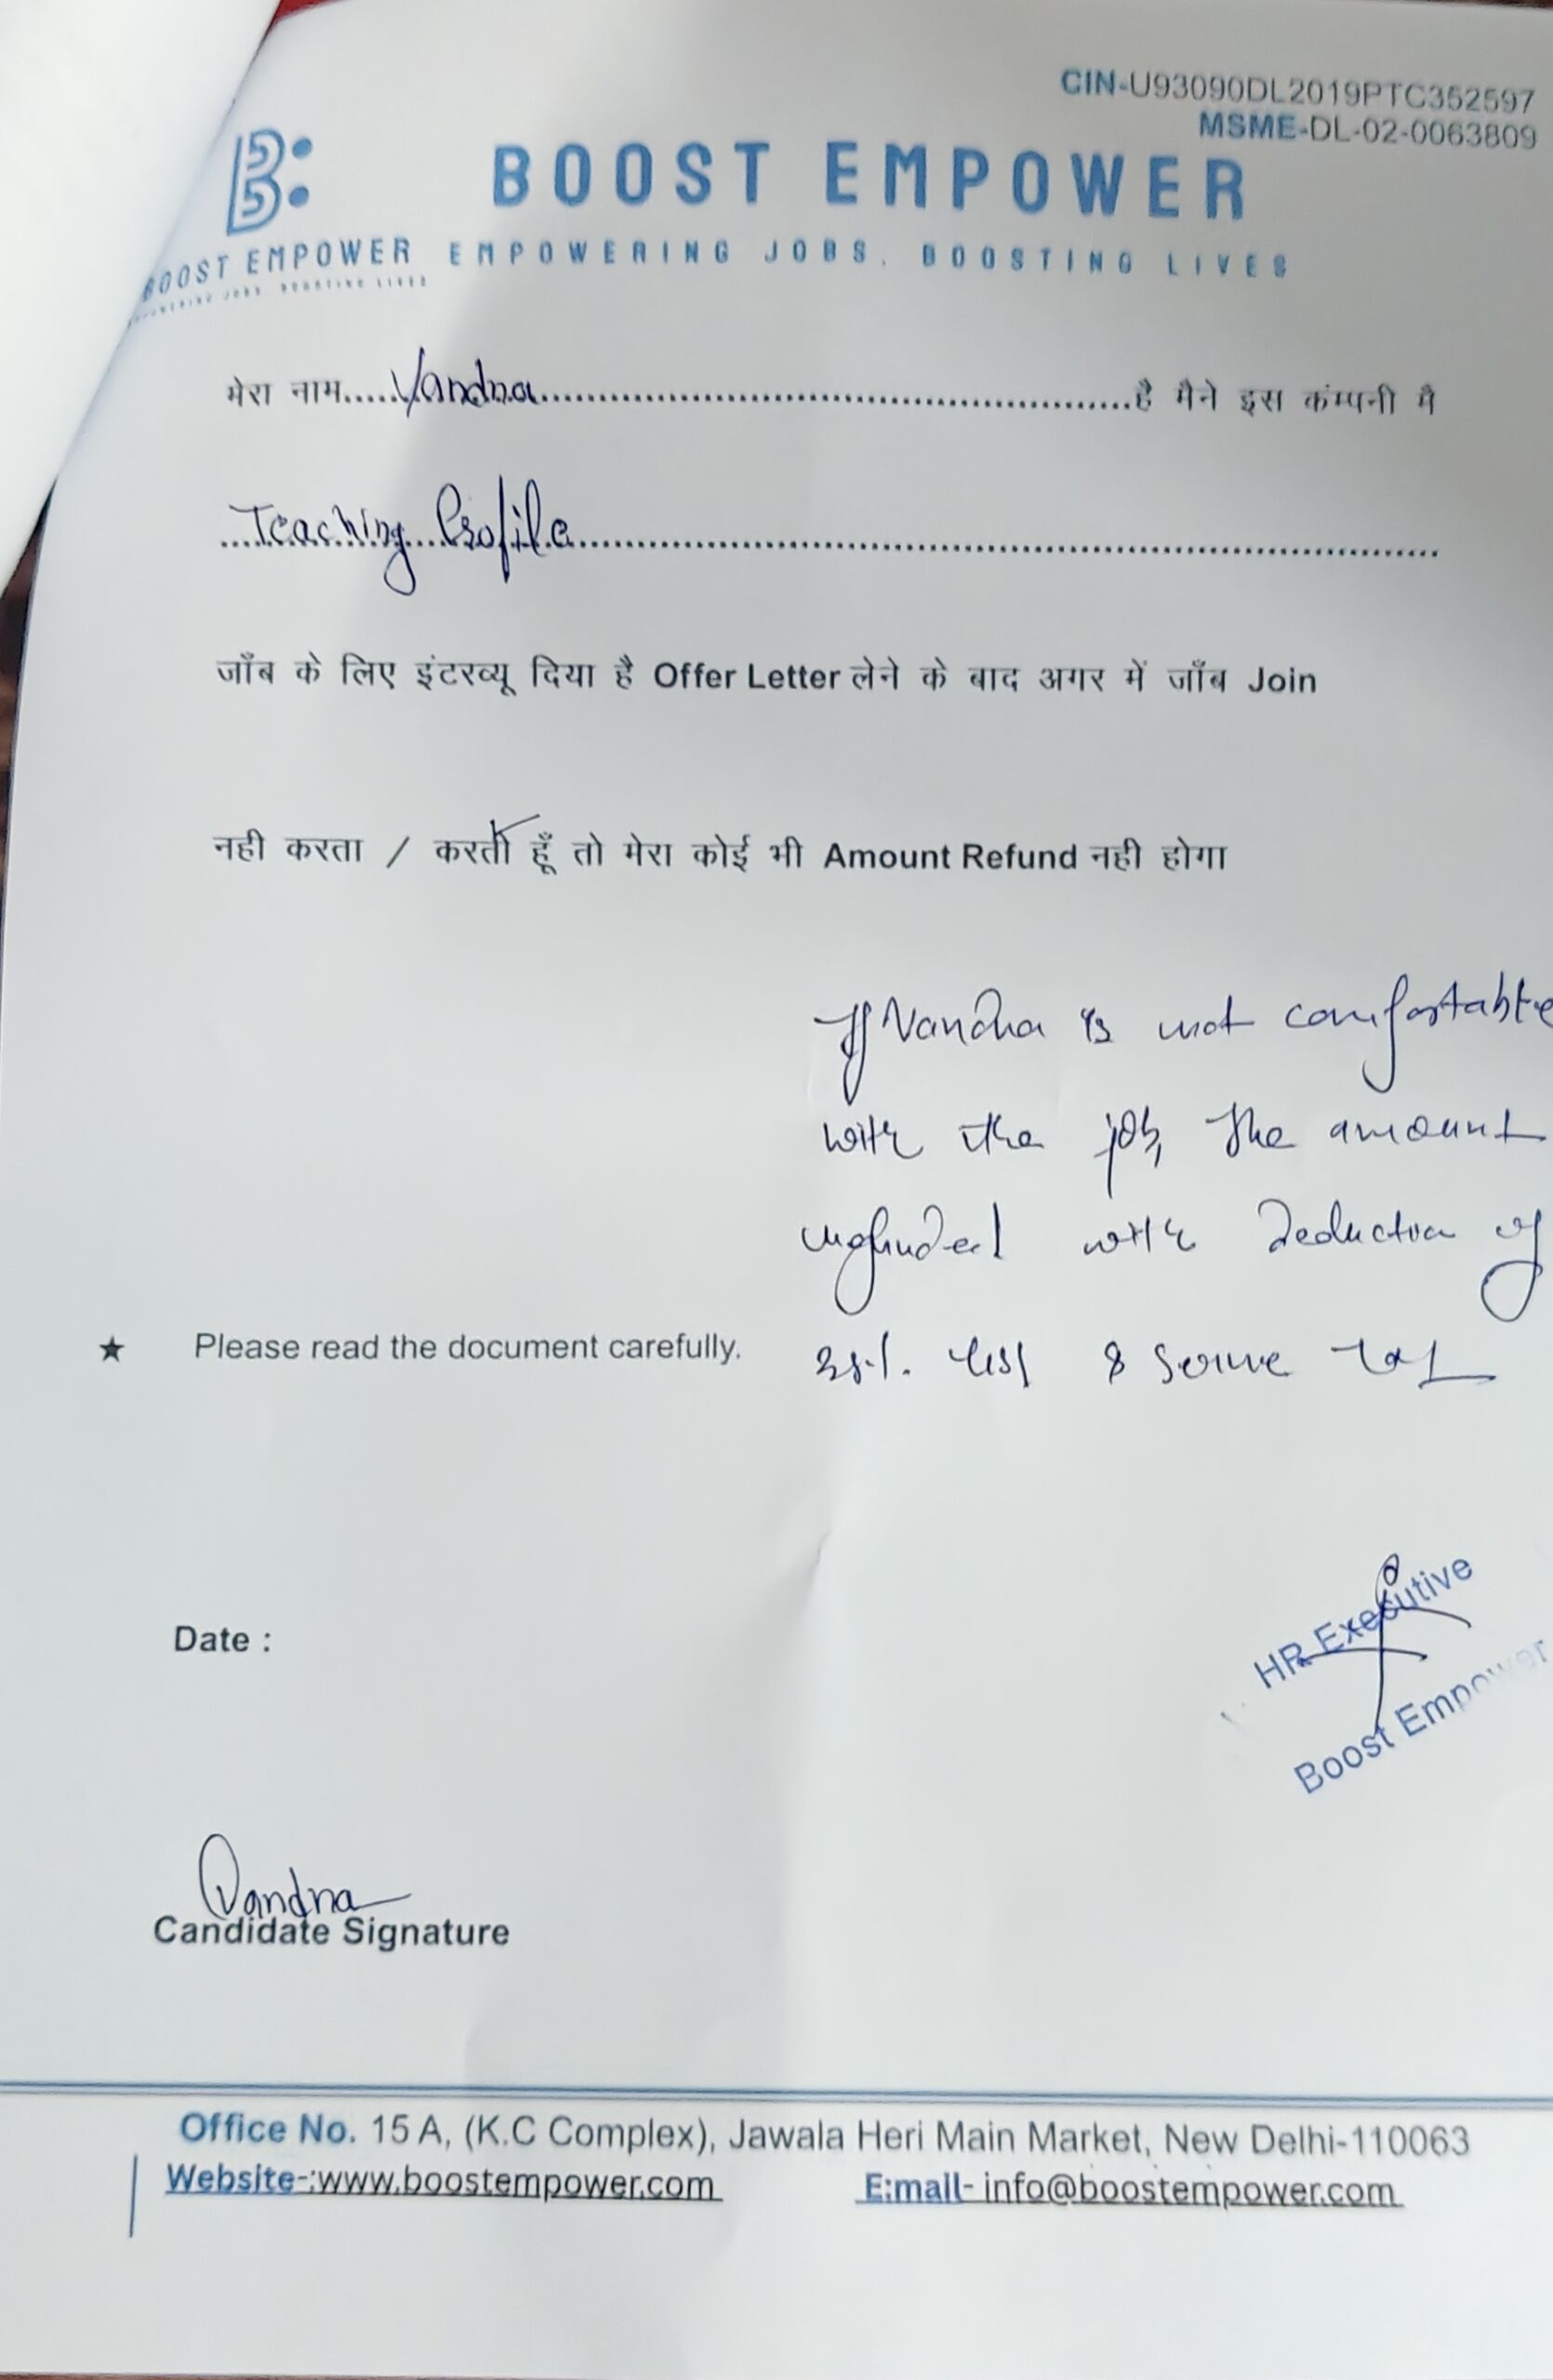 CIN-U93090DL2019PTC352597
MSME-DL-02-0063809
B:
BOOST EMPOWER
BOOST EMPOWER
EMPOWERING JOBS, BOOSTING LIVES
मेरा नाम.....Vandna..........है मैने इस कंम्पनी मै
Teaching Profile
जाँब के लिए इंटरव्यू दिया है Offer Letter लेने के बाद अगर में जाँब Join
नही करता / करती हूँ तो मेरा कोई भी Amount Refund नही होगा
If Vandna is not comfortable
with the job, The amount
with deduction of
★ Please read the document carefully.
Date :
HR Executive
Boost Empower
Vandna
Candidate Signature
Office No. 15 A, (K.C Complex), Jawala Heri Main Market, New Delhi-110063
Website-:www.boostempower.com E:mail- info@boostempower.com